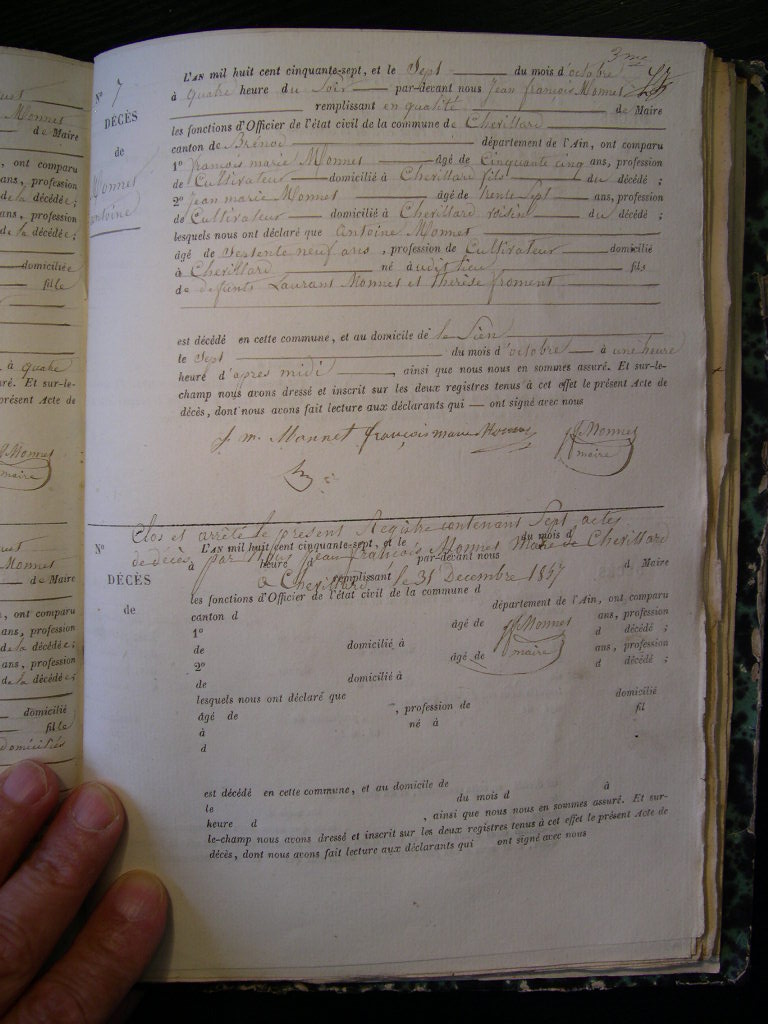 3me
N° 7
DÉCÈS
de
Monnet
antoine
L'AN mil huit cent cinquante-sept, et le Sept du mois d'octobre
à quatre heure du Soir par-devant nous Jean françois Monnet
remplissant en qualité de Maire
les fonctions d'Officier de l'état civil de la commune de Chevillard
canton de Brénod département de l'Ain, ont comparu
1° françois marie Monnet âgé de Cinquante cinq ans, profession
de Cultivateur domicilié à Chevillard fils du décédé ;
2° Jean marie Monnet âgé de trente Sept ans, profession
de Cultivateur domicilié à Chevillard voisin du décédé ;
lesquels nous ont déclaré que antoine Monnet
âgé de Septente neuf ans, profession de Cultivateur domicilié
à Chevillard né audit lieu fils
de defunts Laurant Monnet et thérèse froment
est décédé en cette commune, et au domicile de le Sien
le Sept du mois d'octobre à une heure
heure d'après midi, ainsi que nous nous en sommes assuré. Et sur-le-
champ nous avons dressé et inscrit sur les deux registres tenus à cet effet le présent Acte de
décès, dont nous avons fait lecture aux déclarants qui ont signé avec nous
j. m. Monnet françois marie Monnet JfMonnet
maire
Clos et arrêté le present Registre contenant Sept actes
de décès par Nous Jean françois Monnet Maire de Chevillard
a Chevillard le 31 Decembre 1857
JfMonnet
maire
N°
DÉCÈS
de
L'AN mil huit cent cinquante-sept, et le du mois d
à heure d par-devant nous
remplissant d Maire
les fonctions d'Officier de l'état civil de la commune d
canton d département de l'Ain, ont comparu
1° âgé de ans, profession
de domicilié à d décédé ;
2° âgé de ans, profession
de domicilié à d décédé ;
lesquels nous ont déclaré que
âgé de , profession de domicilié
à né à fil
d
est décédé en cette commune, et au domicile de
le du mois d à
heure d , ainsi que nous nous en sommes assuré. Et sur-
le-champ nous avons dressé et inscrit sur les deux registres tenus à cet effet le présent Acte de
décès, dont nous avons fait lecture aux déclarants qui ont signé avec nous